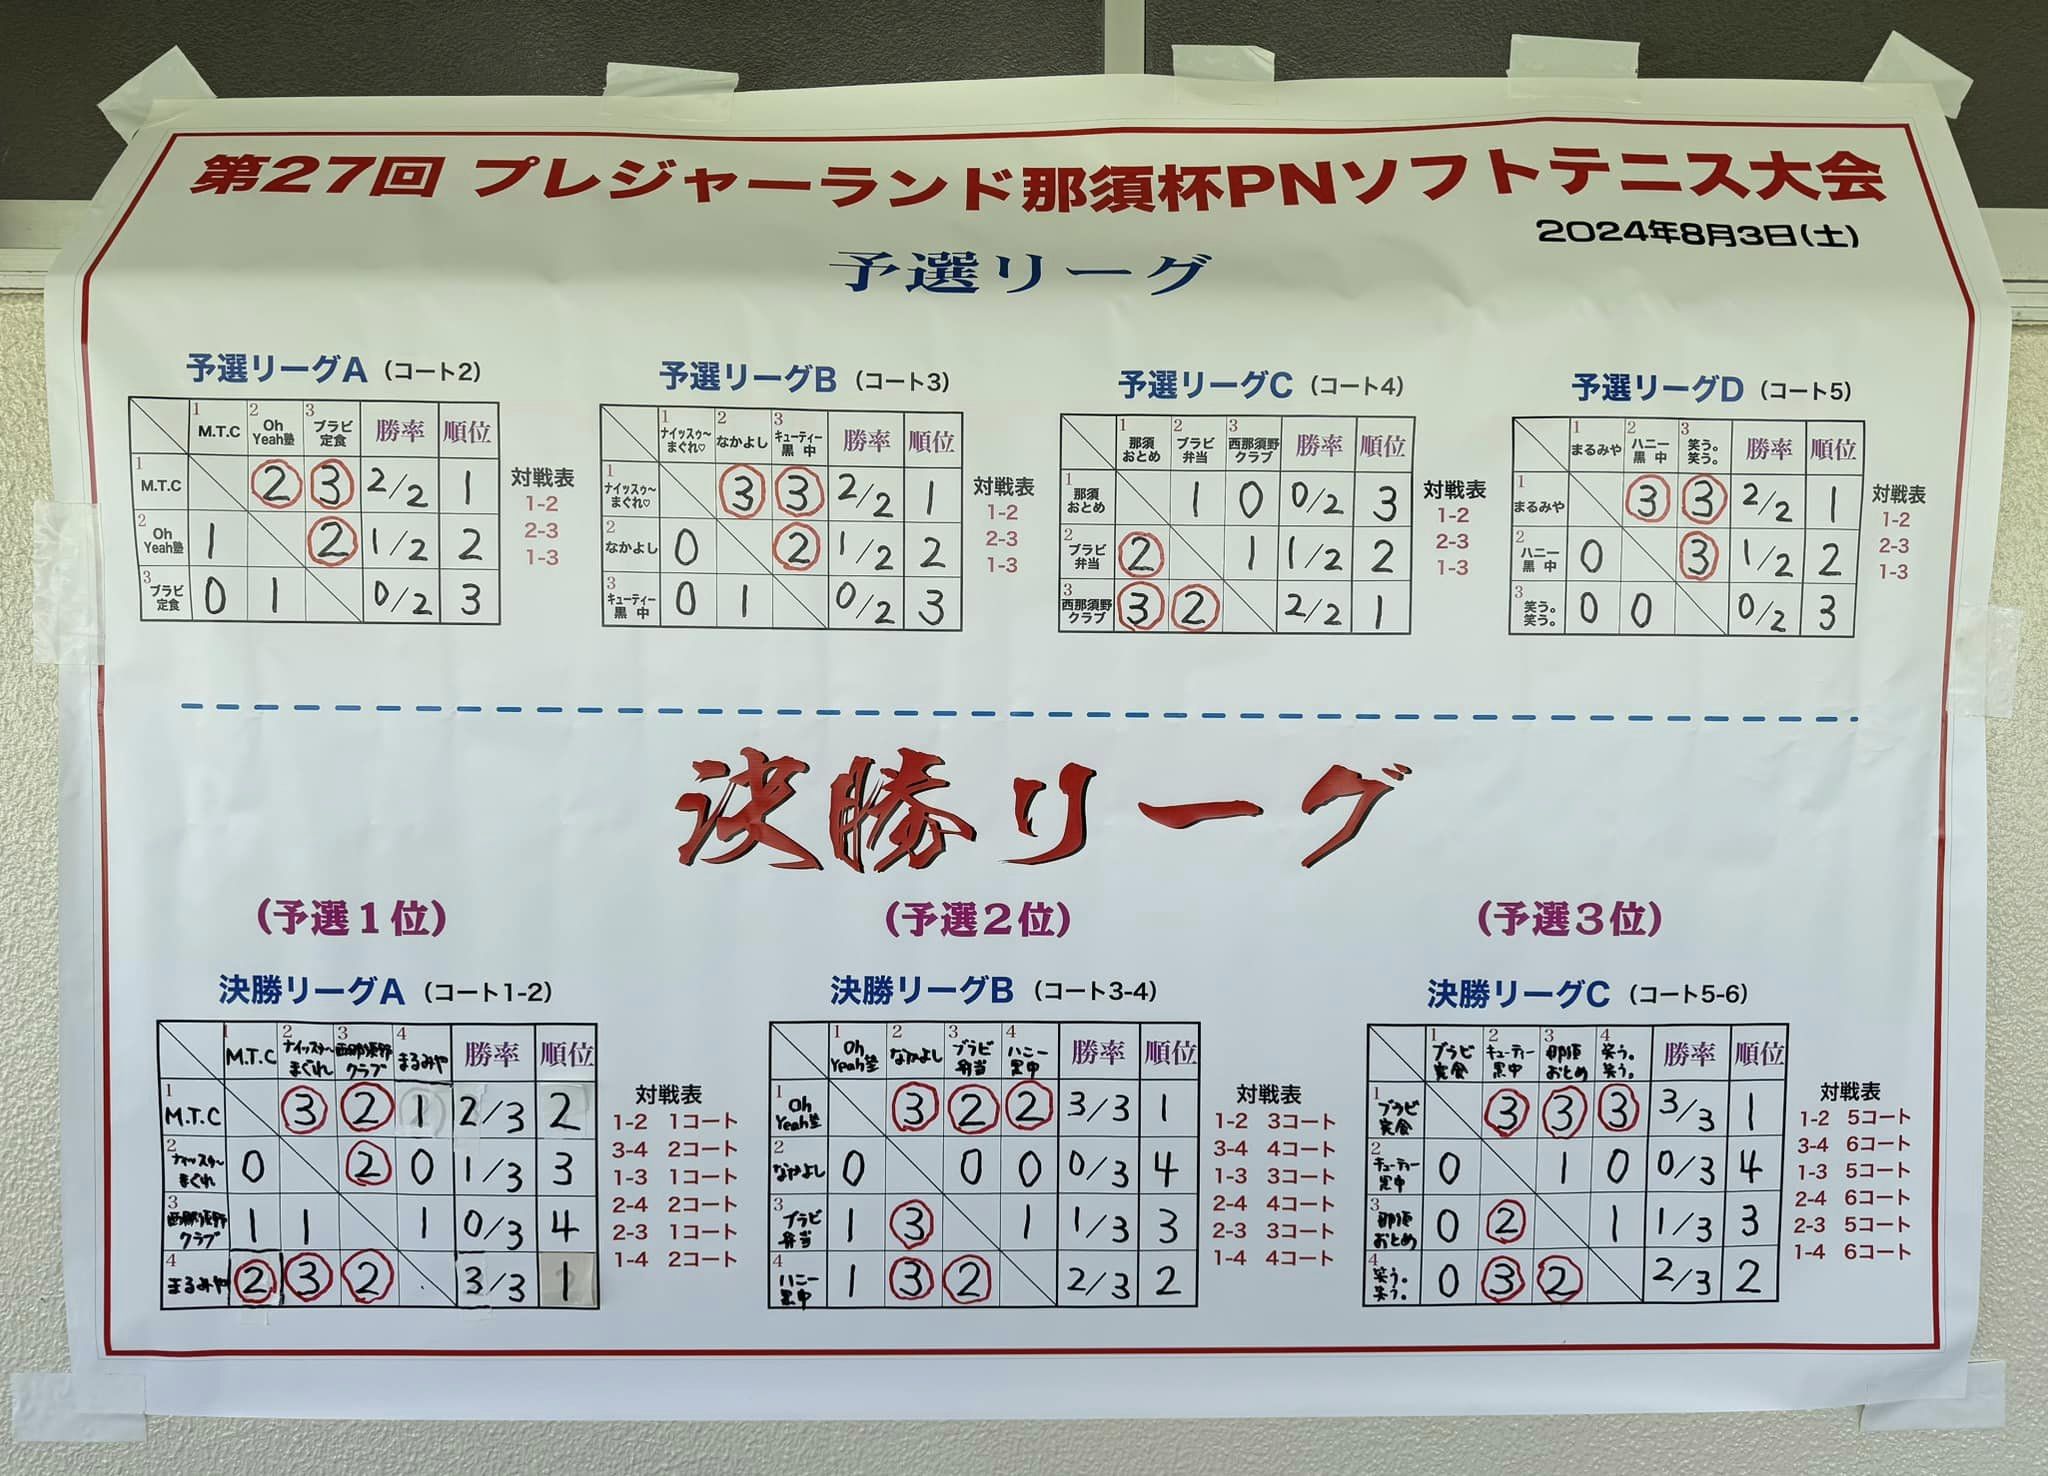 第27回 プレジャーランド那須杯PNソフトテニス大会
2024年8月3日(土)
予選リーグ
予選リーグA (コート2)
1 M.T.C 2 Oh Yeah塾 3 ブラビ定食 勝率 順位
1 M.T.C 2 3 2/2 1
2 Oh Yeah塾 1 2 1/2 2
3 ブラビ定食 0 1 0/2 3
対戦表
1-2
2-3
1-3
予選リーグB (コート3)
1 ナイッスゥ〜まぐれ♡ 2 なかよし 3 キューティー黒中 勝率 順位
1 ナイッスゥ〜まぐれ♡ 3 3 2/2 1
2 なかよし 0 2 1/2 2
3 キューティー黒中 0 1 0/2 3
対戦表
1-2
2-3
1-3
予選リーグC (コート4)
1 那須おとめ 2 ブラビ弁当 3 西那須野クラブ 勝率 順位
1 那須おとめ 1 0 0/2 3
2 ブラビ弁当 2 1 1/2 2
3 西那須野クラブ 3 2 2/2 1
対戦表
1-2
2-3
1-3
予選リーグD (コート5)
1 まるみや 2 ハニー黒中 3 笑う。笑う。 勝率 順位
1 まるみや 3 3 2/2 1
2 ハニー黒中 0 3 1/2 2
3 笑う。笑う。 0 0 0/2 3
対戦表
1-2
2-3
1-3
決勝リーグ
(予選1位)
決勝リーグA (コート1-2)
1 M.T.C 2 ナイッスゥ〜まぐれ 3 西那須野クラブ 4 まるみや 勝率 順位
1 M.T.C 3 2 1 2/3 2
2 ナイッスゥ〜まぐれ 0 2 0 1/3 3
3 西那須野クラブ 1 1 1 0/3 4
4 まるみや 2 3 2 3/3 1
対戦表
1-2 1コート
3-4 2コート
1-3 1コート
2-4 2コート
2-3 1コート
1-4 2コート
(予選2位)
決勝リーグB (コート3-4)
1 Oh Yeah塾 2 なかよし 3 ブラビ弁当 4 ハニー黒中 勝率 順位
1 Oh Yeah塾 3 2 2 3/3 1
2 なかよし 0 0 0 0/3 4
3 ブラビ弁当 1 3 1 1/3 3
4 ハニー黒中 1 3 2 2/3 2
対戦表
1-2 3コート
3-4 4コート
1-3 3コート
2-4 4コート
2-3 3コート
1-4 4コート
(予選3位)
決勝リーグC (コート5-6)
1 ブラビ定食 2 キューティー黒中 3 那須おとめ 4 笑う。笑う。 勝率 順位
1 ブラビ定食 3 3 3 3/3 1
2 キューティー黒中 0 1 0 0/3 4
3 那須おとめ 0 2 1 1/3 3
4 笑う。笑う。 0 3 2 2/3 2
対戦表
1-2 5コート
3-4 6コート
1-3 5コート
2-4 6コート
2-3 5コート
1-4 6コート